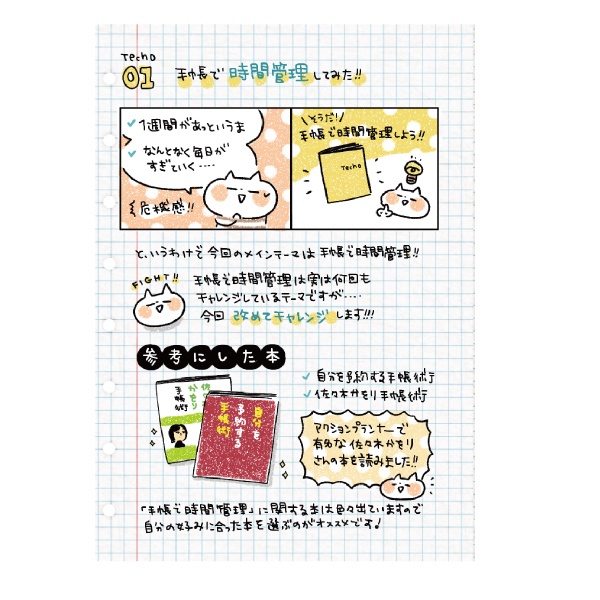 Techo
01
手帳で時間管理してみた!!
✓1週間があっというま
✓なんとなく毎日が
すぎていく····
危機感!!
\そうだ!/
手帳で時間管理しよう!!
Techo
というわけで今回のメインテーマは手帳で時間管理!!
FIGHT!!
手帳で時間管理は実は何回も
チャレンジしているテーマですが····
今回 改めてチャレンジします!!!
参考にした本
✓自分を予約する手帳術
✓佐々木かをり手帳術
佐々木
かをり
手帳術
自分を
予約する
手帳術
アクションプランナーで
有名な佐々木かをり
さんの本を読みました!!
「手帳で時間管理」に関する本は色々出ていますので
自分の好みに合った本を選ぶのがオススメです!